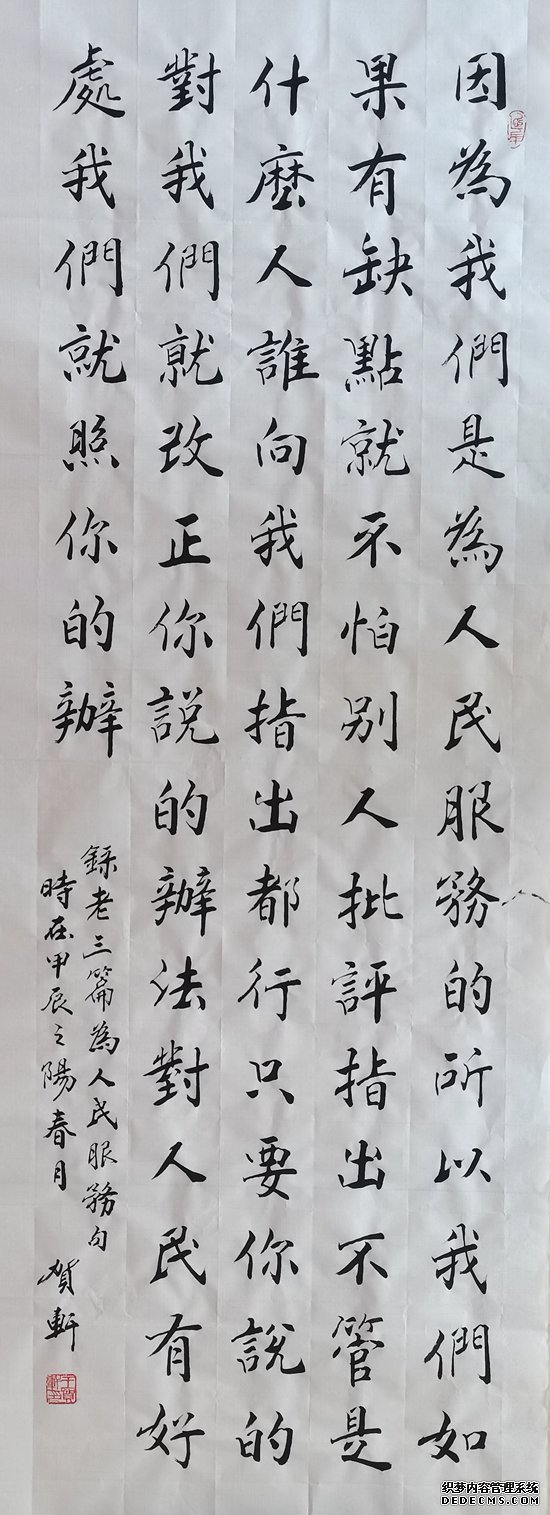 因為我們是為人民服務的所以我們如
果有缺點就不怕別人批評指出不管是
什麼人誰向我們指出都行只要你說的
對我們就改正你說的辦法對人民有好
處我們就照你的辦
錄老三篇為人民服務句
時在甲辰之陽春月
賀軒
织梦内容管理系统
DEDECMS.COM